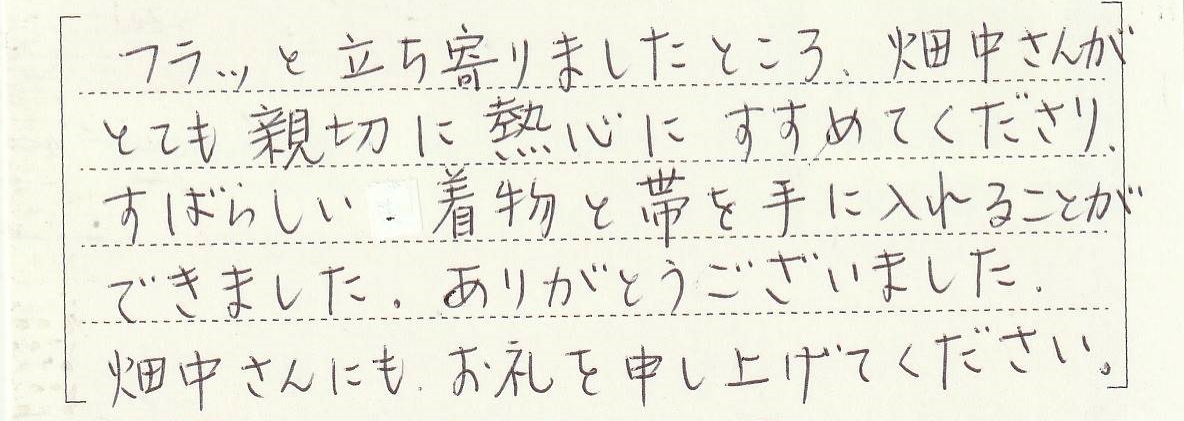 フラッと立ち寄りましたところ、畑中さんが
とても親切に熱心にすすめてくださり、
すばらしい着物と帯を手に入れることが
できました。ありがとうございました。
畑中さんにも、お礼を申し上げてください。